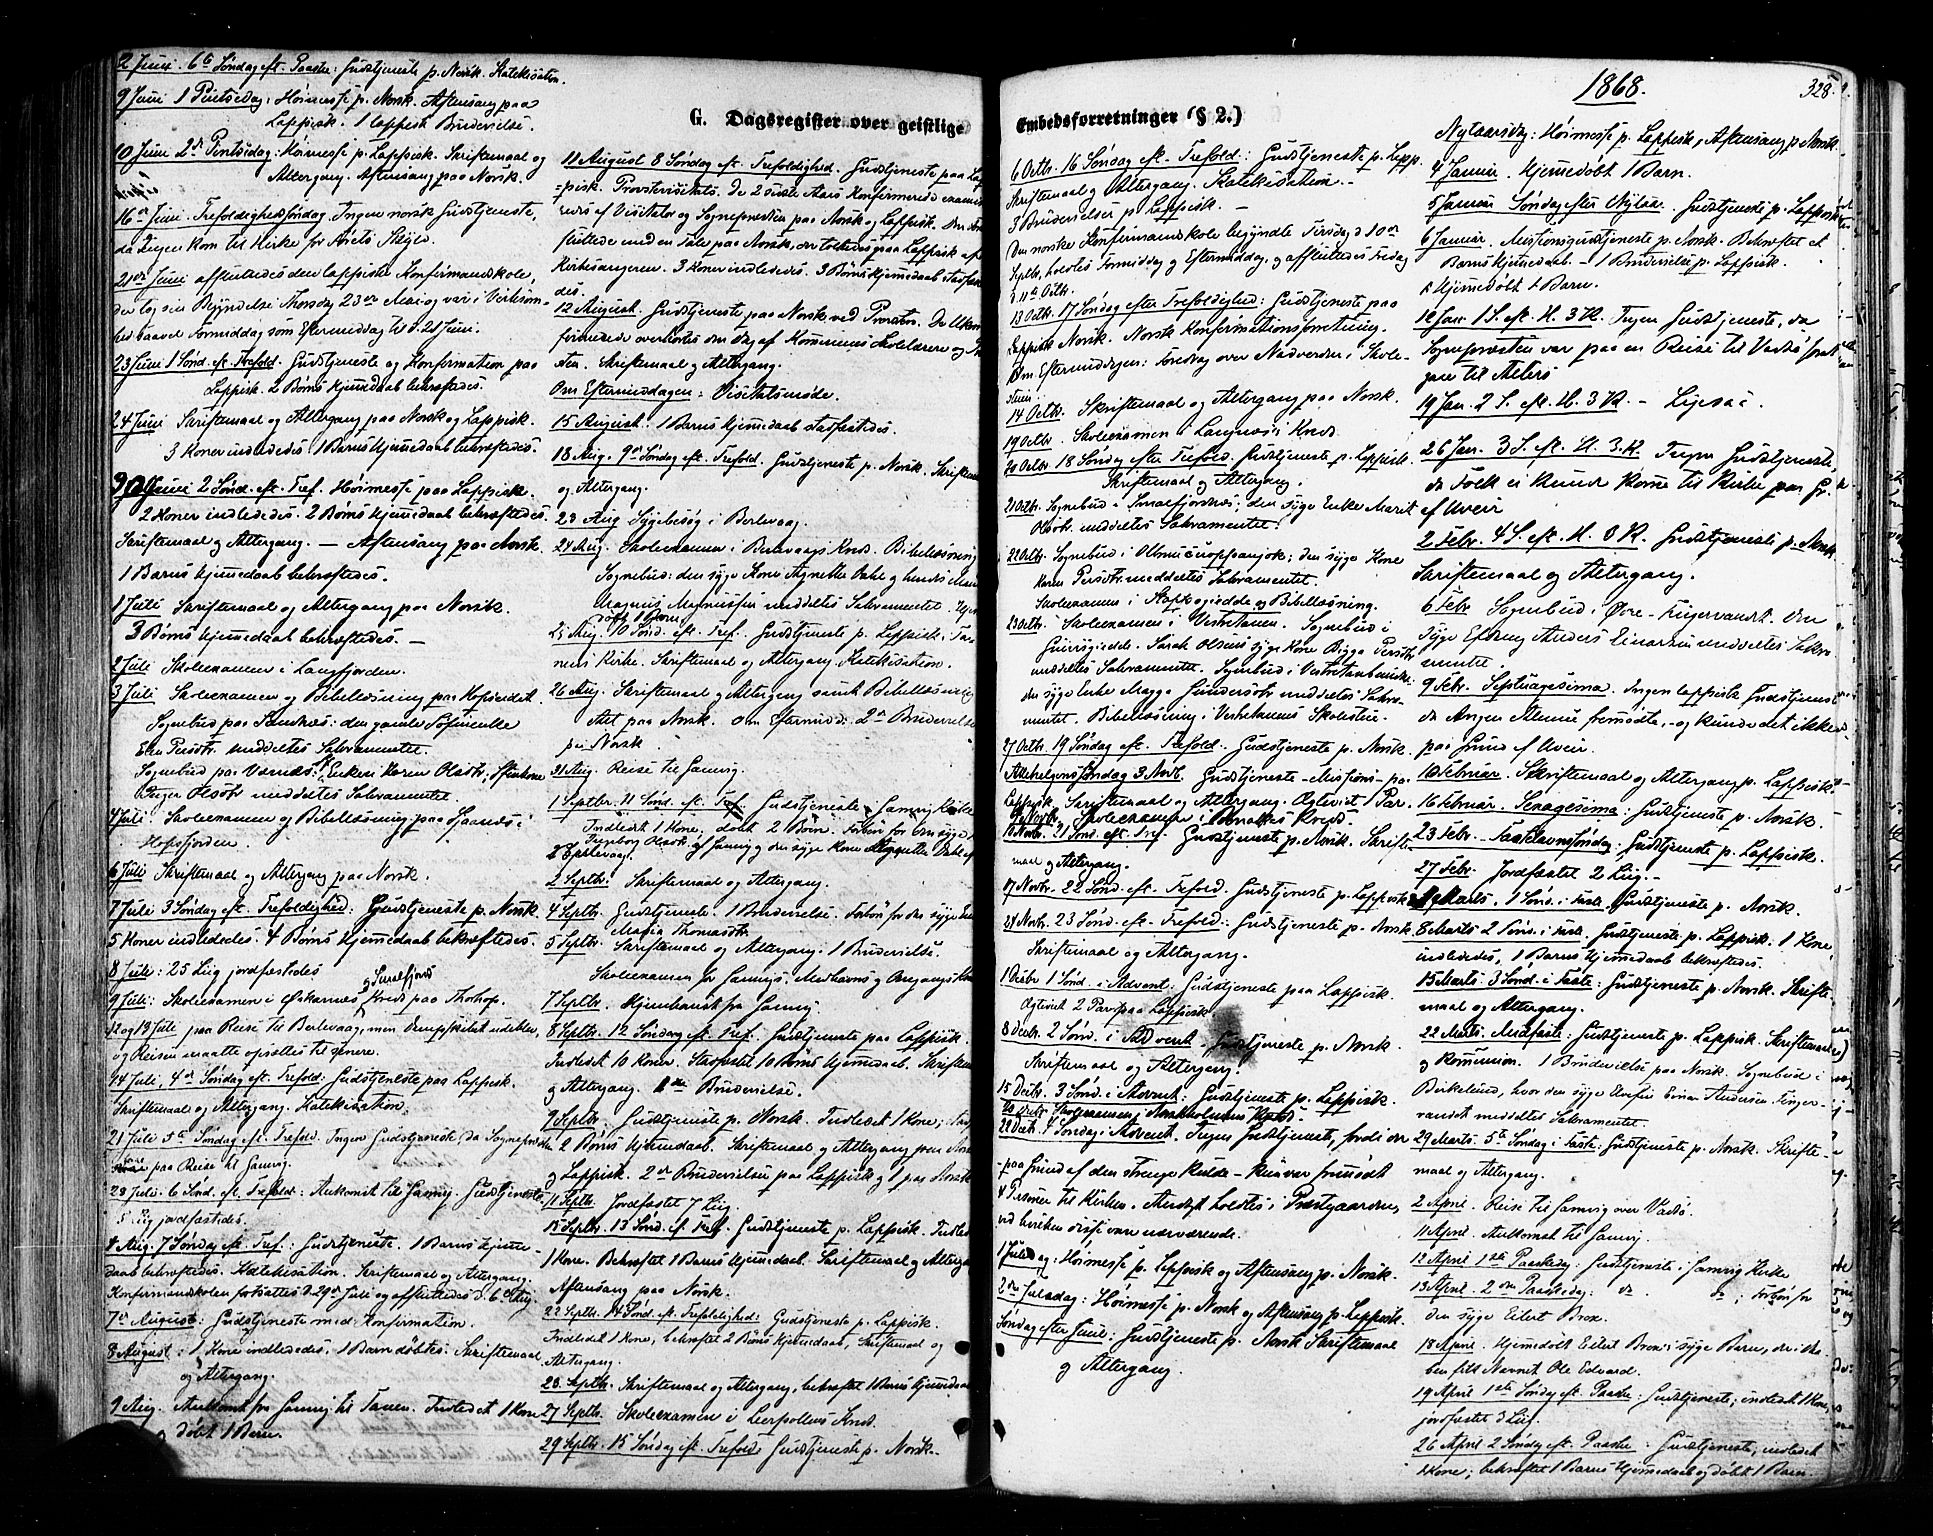 G. Dagsregister over geistlige
2 Juni. 6te Søndag eft. Paaske: Gudstjeneste p. Norsk. Katekisation.
9 Juni 1 Pintsedag: Høimesse p. Norsk. Aftensang paa
Lappisk. 1 lappisk Brudevielse.
10 Juni 2d Pintsedag: Høimesse p. Lappisk. Skriftemaal og
Altergang. Aftensang paa Norsk.
16de Juni. Trefoldighedssøndag. Ingen norsk Gudstjeneste,
da Ingen kom til Kirke for Skyld.
21de Juni afsluttedes den lappiske Konfirmandskole,
der tog sin Begyndelse Thorsdag 23de Mai og var i Virksom-
hed baade Formiddag som Eftermiddag til d. 21 Juni.
23 Juni 1 Sønd. eft. Trefold. Gudstjeneste og Konfirmation paa
Lappisk. 2 Børns Hjemmedaab bekræftedes.
24 Juni Skriftemaal og Altergang paa Norsk og Lappisk.
3 Koner indledes. 1 Barns Hjemmedaab bekræftedes.
30 Juni 2 Sønd. eft. Tref. Høimesse paa Lappisk.
2 Koner indledes. 2 Børns Hjemmedaab bekræftedes.
Skriftemaal og Altergang. — Aftensang paa Norsk.
1 Barns Hjemmedaab bekræftedes.
1 Juli Skriftemaal og Altergang paa Norsk.
3 Børns Hjemmedaab bekræftedes. —
2 Juli Skoleexamen i Langfjorden.
3 Juli Skoleexamen og Bibellæsning paa Hopseidet.
Sognebud paa Sandnæs: den gamle Enke
Elen Persdtr. meddeltes Sakramentet.
Sognebud paa Værnæs: Enken Karen Olsdtr.;
Inger Olsdtr meddeltes Sakramentet.
4 Juli Skoleexamen og Bibellæsning paa i
Hopsfjorden.
6 Juli Skriftemaal og Altergang paa Norsk.
7 Juli 3 Søndag eft. Trefoldighed: Gudstjeneste p. Norsk.
5 Koner indledes. 4 Børns Hjemmedaab bekræftedes.
8 Juli: 25 Liig jordfæstedes
9 Juli: Skoleexamen i og Smalfjord Kreds paa
12 og 13 Juli paa Reise til Berlevaag, men Dampskibet udeblev,
og Reisen maatte opsættes til senere.
14 Juli, 4de Søndag eft. Trefold: Gudstjeneste paa Lappisk.
Skriftemaal og Altergang. Katekisation.
21 Juli 5te Søndag eft. Trefold. Ingen Gudstjeneste, da Sognepræsten
var paa Reise til Gamvig.
28 Juli. 6 Sønd. eft. Trefold: Ankomst til Gamvig. Gudstjeneste.
5 Liig jordfæstedes.
4 Aug. 7 Søndag eft. Tref.: Gudstjeneste. 1 Barns Hjemme-
daab bekræftedes. Katekisation. Skriftemaal og Altergang.
Konfirmandskolen fortsattes d. 29de Juli og afsluttedes d. 6te Aug.
7de August: Gudstjeneste med Konfirmation.
8 August: 1 Kone indledes, 1 Barn døbtes. Skriftemaal
og Altergang.
9 Aug. Ankomst fra Gamvig til Tanen. Indledet 1 Kone
døbt 1 Barn.
11 August 8 Søndag eft. Trefoldighed. Gudstjeneste paa Lap-
pisk. Provstevisitats. De 2 sidste Aars Konfirmerede exami-
neredes af Visitator og Sognepræsten paa Norsk og Lappisk.
sluttede med en Tale paa Norsk, der tolkedes paa Lappisk af
Kirkesangeren. 3 Koner indledes. 3 Børns Hjemmedaab stadfæste-
des.
12 August. Gudstjeneste paa Norsk ved Provsten. De Ukon-
firmerede overhørtes den Dag af Kommunens Skolelærere og
Skriftemaal og Altergang.
Om Eftermiddagen: Visitatsmøde.
15 August. 1 Barns Hjemmedaab stadfæstedes.
18 Aug. 9de Søndag eft. Trefold. Gudstjeneste p. Norsk. Skriftemaal
og Altergang.
23 Aug Sygebesøg i Berlevaag.
24 Aug. Skoleexamen i Berlevaags Kreds. Bibellæsning
Sognebud: den syge Kone Agnethe og hendes Mand
Magnus Magnussen meddeltes Sakramentet.
døbt 1 Barn
25 Aug. 10 Sønd. eft. Tref. Gudstjeneste p. Lappisk i Ta-
nens Kirke. Skriftemaal og Altergang. Katekisation.
26 Aug. Skriftemaal og Altergang samt Bibellæsning
Alt paa Norsk. Om Eftermidd: 2 Brudevielser
paa Norsk.
31 Aug. Reise til Gamvig.
1 Septbr. 11 Sønd. eft. Tref. Gudstjeneste i Gamvig Kirke
Indledet 1 Kone; døbt 2 Børn. Forbøn for den syge
Ingeborg Olsdtr. af Gamvig og den syge Kone Agnethe
Berlevaag.
2 Septbr: Skriftemaal og Altergang.
4 Septbr. Gudstjeneste. 1 Brudevielse. Forbøn for den syge
Maria Thomasdtr.
5 Septbr Skriftemaal og Altergang. 1 Brudevielse.
Skoleexamen for Gamvigs, Mehavns og Omgangs Kreds
7 Septbr. Hjemkomst fra Gamvig
8 Septbr. 12 Søndag eft. Tref. Gudstjeneste paa Lappisk.
Indledt 10 Koner. Stadfæstet 10 Børns Hjemmedaab. Skriftemaal
og Altergang. Brudevielse.
9 Septbr. Gudstjeneste p. Norsk. Indledet 1 Kone,
2 Børns Hjemmedaab. Skriftemaal og Altergang paa Norsk
og Lappisk. 2 Brudevielser paa Lappisk og 1 paa Norsk.
11 Septbr. Jordfæstet 7 Liig.
15 Septbr. 13 Sønd. eft. Tref. Gudstjeneste p. Lappisk. Indledet
1 Kone. Bekræftet 1 Barns Hjemmedaab. Skriftemaal og Altergang
Aftensang paa Norsk.
22 Septbr. 14 Sønd. eft. Trefoldighed: Gudstjeneste p. Lappisk.
Indledet 1 Kone, bekræftet 2 Børns Hjemmedaab, Skriftemaal og
Altergang.
23. Septbr. Skriftemaal og Altergang, bekræftet 1 Barns Hjemmedaab
27 Septbr. Skoleexamen i Leerpollens Kreds.
29 Septbr. 15 Søndag eft. Trefold: Gudstjeneste p. Norsk.
Embedsforretninger (§ 2.)
1868.
328.
6 Octbr. 16 Søndag eft. Trefold: Gudstjeneste p. Lapp.
Skriftemaal og Altergang. Katekisation. —
3 Brudevielser p. Lappisk. —
Den norske Konfirmandskole begyndte Tirsdag d. 10de
Septbr, holdtes Formiddag og Eftermiddag, og afsluttedes Fredag
d. 11te Octbr.
13 Octbr. 17 Søndag efter Trefoldighed: Gudstjeneste paa
Norsk. Norsk Konfirmationsforretning.
Om Eftermiddagen: Foredrag over Nadverden i Skole-
stuen.
14 Octbr. Skriftemaal og Altergang paa Norsk.
19 Octbr. Skoleexamen i Langnæs Kreds.
20 Octbr 18 Søndag efter Trefold. Gudstjeneste p. Lappisk.
Skriftemaal og Altergang.
21 Octbr. Sognebud i Smalfjordnæs; den syge Enke Marit
Olsdtr. meddeltes Sakramentet.
22 Octbr. Sognebud i; den syge Kone
Karen Persdtr meddeltes Sakramentet.
Skoleexamen i og Bibellæsning.
23 Octbr. Skoleexamen i Vestertanen. Sognebud i
Sarak Olsens syge Kone Bigga Persdtr
meddeltes Sakramentet. Sognebud i
den syge Enke Magga Gundersdtr meddeltes Sakra-
mentet. Bibellæsning i Vestertanens Skolestue.
27 Octbr. 19 Søndag eft. Trefold. Gudstjeneste p. Norsk.
Allehelgens Søndag 3 Novb. Gudstjeneste – Missions – paa
Lappisk. Skriftemaal og Altergang. Ægteviet 1 Par.
9 Novbr. Skoleexamen i Kreds.
10 Novbr. 21 Sønd. eft. Tref. Gudstjeneste p. Norsk. Skrifte-
maal og Altergang.
17 Novbr. 22 Sønd. eft. Trefold. Gudstjeneste p. Lappisk
24 Novb. 23 Sønd. eft. Trefold.: Gudstjeneste p. Norsk
Skriftemaal og Altergang.
1 Decbr 1 Sønd. i Advent: Gudstjeneste paa Lappisk.
Ægteviet 2 Par paa Lappisk
8 Decbr. 2 Sønd. i Advent. Gudstjeneste p. Norsk
Skriftemaal og Altergang.
15 Decbr. 3 Sønd. i Advent: Gudstjeneste p. Lappisk.
20 Decbr Skoleexamen i Kreds
22 Decbr. 4 Søndag i Advent. Ingen Gudstjeneste, fordi der
paa Grund af den strenge Kulde – kun var fremmødt
4 Personer til Kirken. Andagt holdtes i Præstgaarden,
ved hvilken disse vare nærværende.
1 Juledag. Høimesse p. Lappisk og Aftensang p. Norsk.
2den Juledag: Høimesse p. Norsk og Aftensang p. Lappisk.
Søndag efter Juul: Gudstjeneste p. Norsk Skriftemaal
og Altergang.
Nytaarsdag: Høimesse p. Lappisk, Aftensang p. Norsk.
4 Januar. Hjemmedøbt 1 Barn.
5 Januar Søndag efter Nytaar. Gudstjeneste p. Lappisk
6 Januar. Missionsgudstjeneste p. Norsk. Bekræftet et
Barns Hjemmedaab. – 1 Brudevielse p. Lappisk.
Hjemmedøbt 1 Barn.
12 Jan. 1 S. eft. H. 3 K. Ingen Gudstjeneste, da
Sognepræsten var paa en Reise til Vadsø
19 Jan. 2 S. eft. H. 3 K. – Ligesaa.
26 Jan. 3 S. eft. H. 3 K. Ingen Gudstjeneste,
da Folk ei kunde komme til Kirke paa Gr.
af Uveir
2 Febr. 4 S. eft. H. 3 K. Gudstjeneste p. Norsk
Skriftemaal og Altergang.
6 Febr Sognebud i Øvre-Fingervandet. Den
syge Anders Einarsen meddeltes Sakra-
mentet.
9 Febr. Septuagesima. Ingen lappisk Gudstjeneste
da Ingen Almue fremmødte, – og kunde det ikke
paa Grund af Uveir.
10 Februar. Skriftemaal og Altergang p. Lappisk –
16 Februar. Sexagesima: Gudstjeneste p. Norsk.
23 Febr. Fastelavnssøndag: Gudstjeneste p. Lappisk.
27 Febr. Jordfæstet 2 Liig. –
1 Marts. 1 Sønd. i Faste. Gudstjeneste p. Norsk.
8 Marts 2 Sønd. i Faste. Gudstjeneste p. Lappisk. 1 Kone
indledes, 1 Barns Hjemmedaab bekræftedes.
15 Marts. 3 Sønd. i Faste: Gudstjeneste p. Norsk. Skrifte-
maal og Altergang.
22 Marts: Midfaste: Gudstjeneste p. Lappisk. Skriftemaal
og Kommunion. 1 Brudevielse paa Norsk. Sognebud i
Birkelund, hvor den syge Einar Andersen Finger-
vandet meddeltes Sakramentet.
29 Marts. 5te Søndag i Faste: Gudstjeneste p. Norsk. Skrifte-
maal og Altergang.
2 April. Reise til Gamvig over Vadsø.
11 April. Ankomst til Gamvig.
12 April 1ste Paaskedag: Gudstjeneste i Gamvig Kirke
13 April. 2den Paaskedag: do. do; Forbøn for
den syge Eilert Brox.
18 April. Hjemmedøbt Eilert Brox's syge Barn, der i Daa-
ben fik Navnet Ole Edvard.
19 April 1ste Søndag eft. Paaske: Gudstjeneste; indledet 1 Kone,
jordfæstet 3 Liig.
26 April 2 Søndag eft. Paaske: Gudstjeneste, indledet
1 Kone; bekræftet 1 Barns Hjemmedaab og døbt 1 Barn.